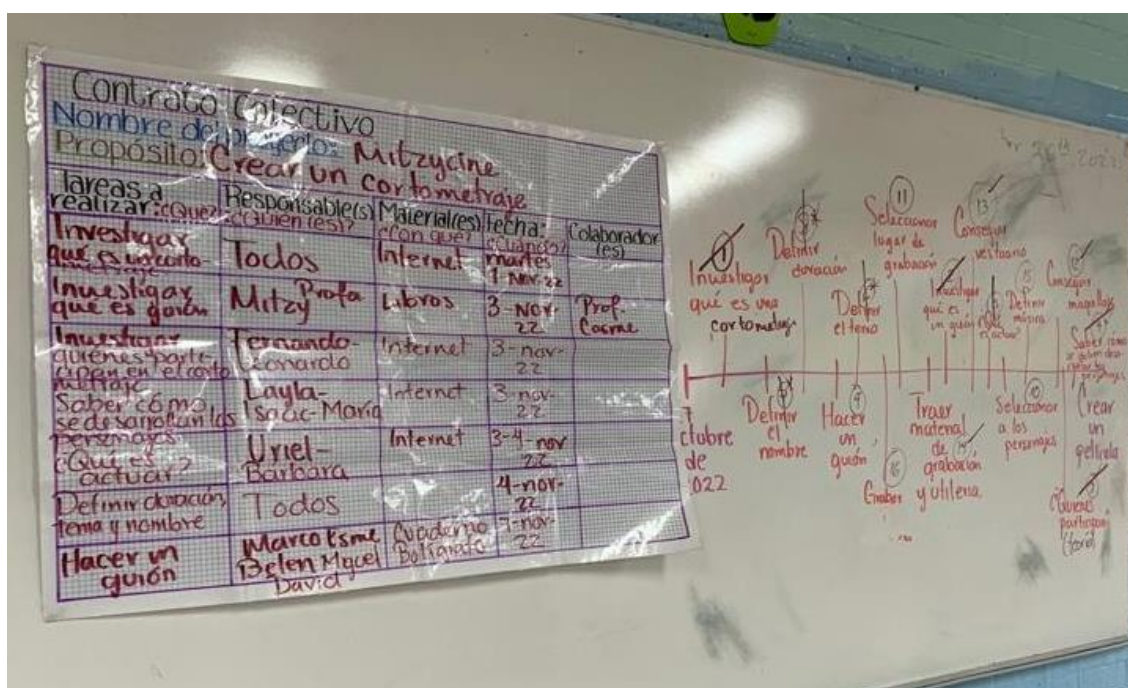 Contrato Colectivo
Nombre del proyecto: Mitzycine
Propósito: Crear un cortometraje
Tareas a realizar: ¿Qué?
Responsable(s) ¿Quién(es)?
Material(es) ¿Con qué?
Fecha: ¿Cuándo?
Colaborador(es)
Investigar
qué es un corto-
metraje
Todos
Internet
martes
1-Nov-22
Investigar
qué es guión
Mitzy Profa
Libros
3-Nov-
22
Prof.
Cosme
Investigar
quienes parti-
cipan en el corto
metraje
Fernando-
Leonardo
Internet
3-nov-
22
Saber cómo
se desarrollan los
personajes
Layla-
Isaac-María
Internet
3-nov-
22
¿Qué es
actuar?
Uriel-
Bárbara
Internet
3-4-nov
22
Definir duración,
tema y nombre
Todos
4-nov-
22
Hacer un
guión
Marco Esme
Belen Miguel
David
Cuaderno
Bolígrafo
7-nov-
22
2022
1
Investigar
qué es una
cortometraje
Definir
duración
Definir
el tema
11
Seleccionar
lugar de
grabación
Investigar
qué es
un guión
13
Conseguir
vestuario
15
Definir
música
Conseguir
maquillaje
Saber cómo
se
personajes
ctubre
de
2022
Definir
el
nombre
9
Hacer
un
guión
16
Grabar
Traer
material
de
grabación
y utilería
10
Seleccionar
a los
personajes
Crear
un
película
Quienes
participan